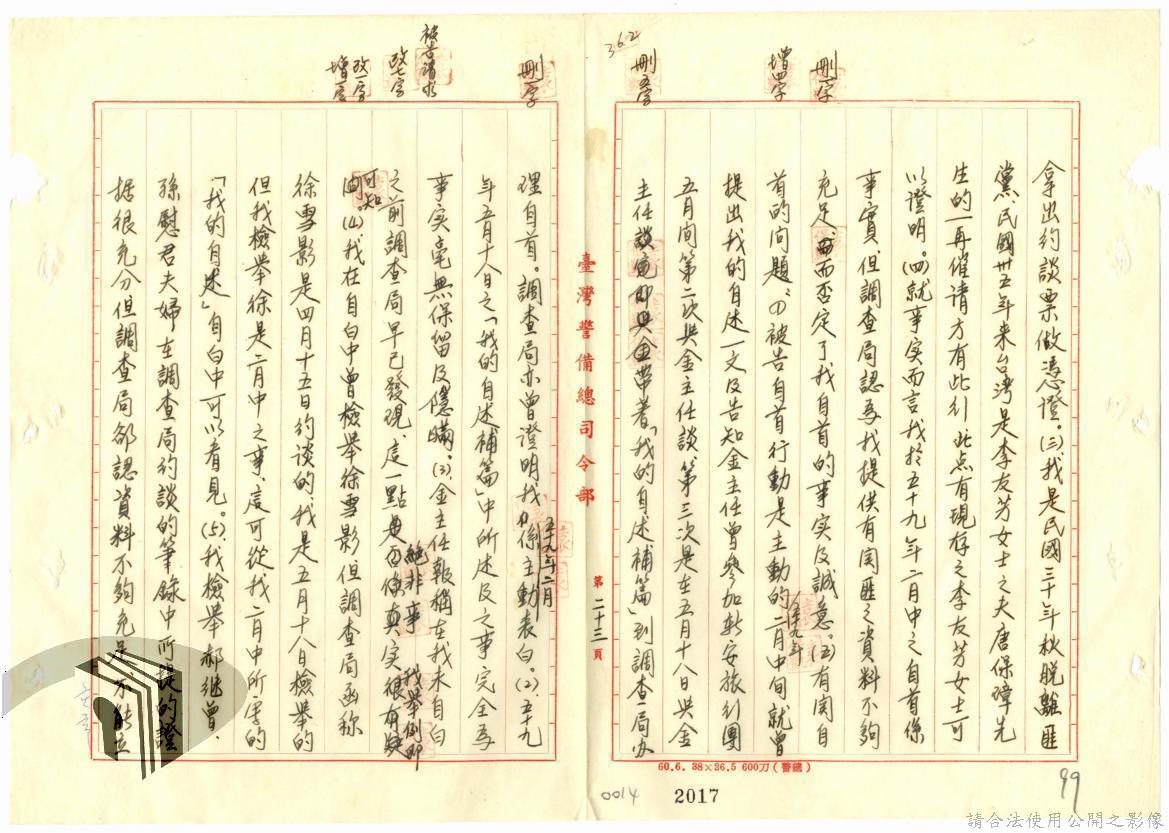 刪一字
增四字
刪五字
362
拿出約談票做憑證。(三)我是民國三十年秋脫離匪
黨,民國卅五年来台灣是李友芳女士之夫唐保璋先
生的一再催请方有此行此点有現存之李友芳女士可
以證明。(四)就事实而言我於五十九年二月中之自首係
事實但調查局認為我提供有関匪之資料不夠
充足,而否定了我自首的事实及誠意。(五)有関自
首的问題:(1)被告自首行動是主動的五十九年二月中旬就曾
提出我的自述一文及告知金主任曾參加新安旅行團
五月間第二次與金主任談,第三次是在五月十八日與金
主任談
帶著「我的自述補篇」到調查局办
臺灣警備總司令部
第二十三頁
刪一字
被告請求
改七字
改一字
增一字
理自首。調查局亦曾證明我五十九年二月係主動表白。(2)、五十九
年五月十八日之「我的自述補篇」中所述及之事完全為
事实毫無保留及隱瞞。(3)、金主任報稱在我未自白
之前調查局早已發現,這一點絕非事实,我舉例即
可知。(4)、我在自白中曾檢舉徐雪影但調查局函称
徐雪影是四月十五日约谈的,我是五月十八日檢舉的
但我檢舉徐是二月中之事,這可從我二月中所写的
「我的自述」自白中可以看見。(5)、我檢舉郝继曾、
孫慰君夫婦在調查局約談的筆錄中所提的證
据很充分但調查局卻認資料不夠充足,不能立
60.6. 38×26.5 600刀(警總)
0014
2017
99
請合法使用公開之影像